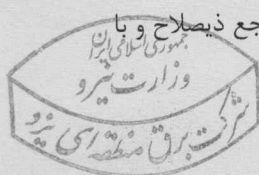 جع ذیصلاح و با
جمهوری اسلامی ایران
وزارت نیرو
شرکت برق منطقه ای یزد